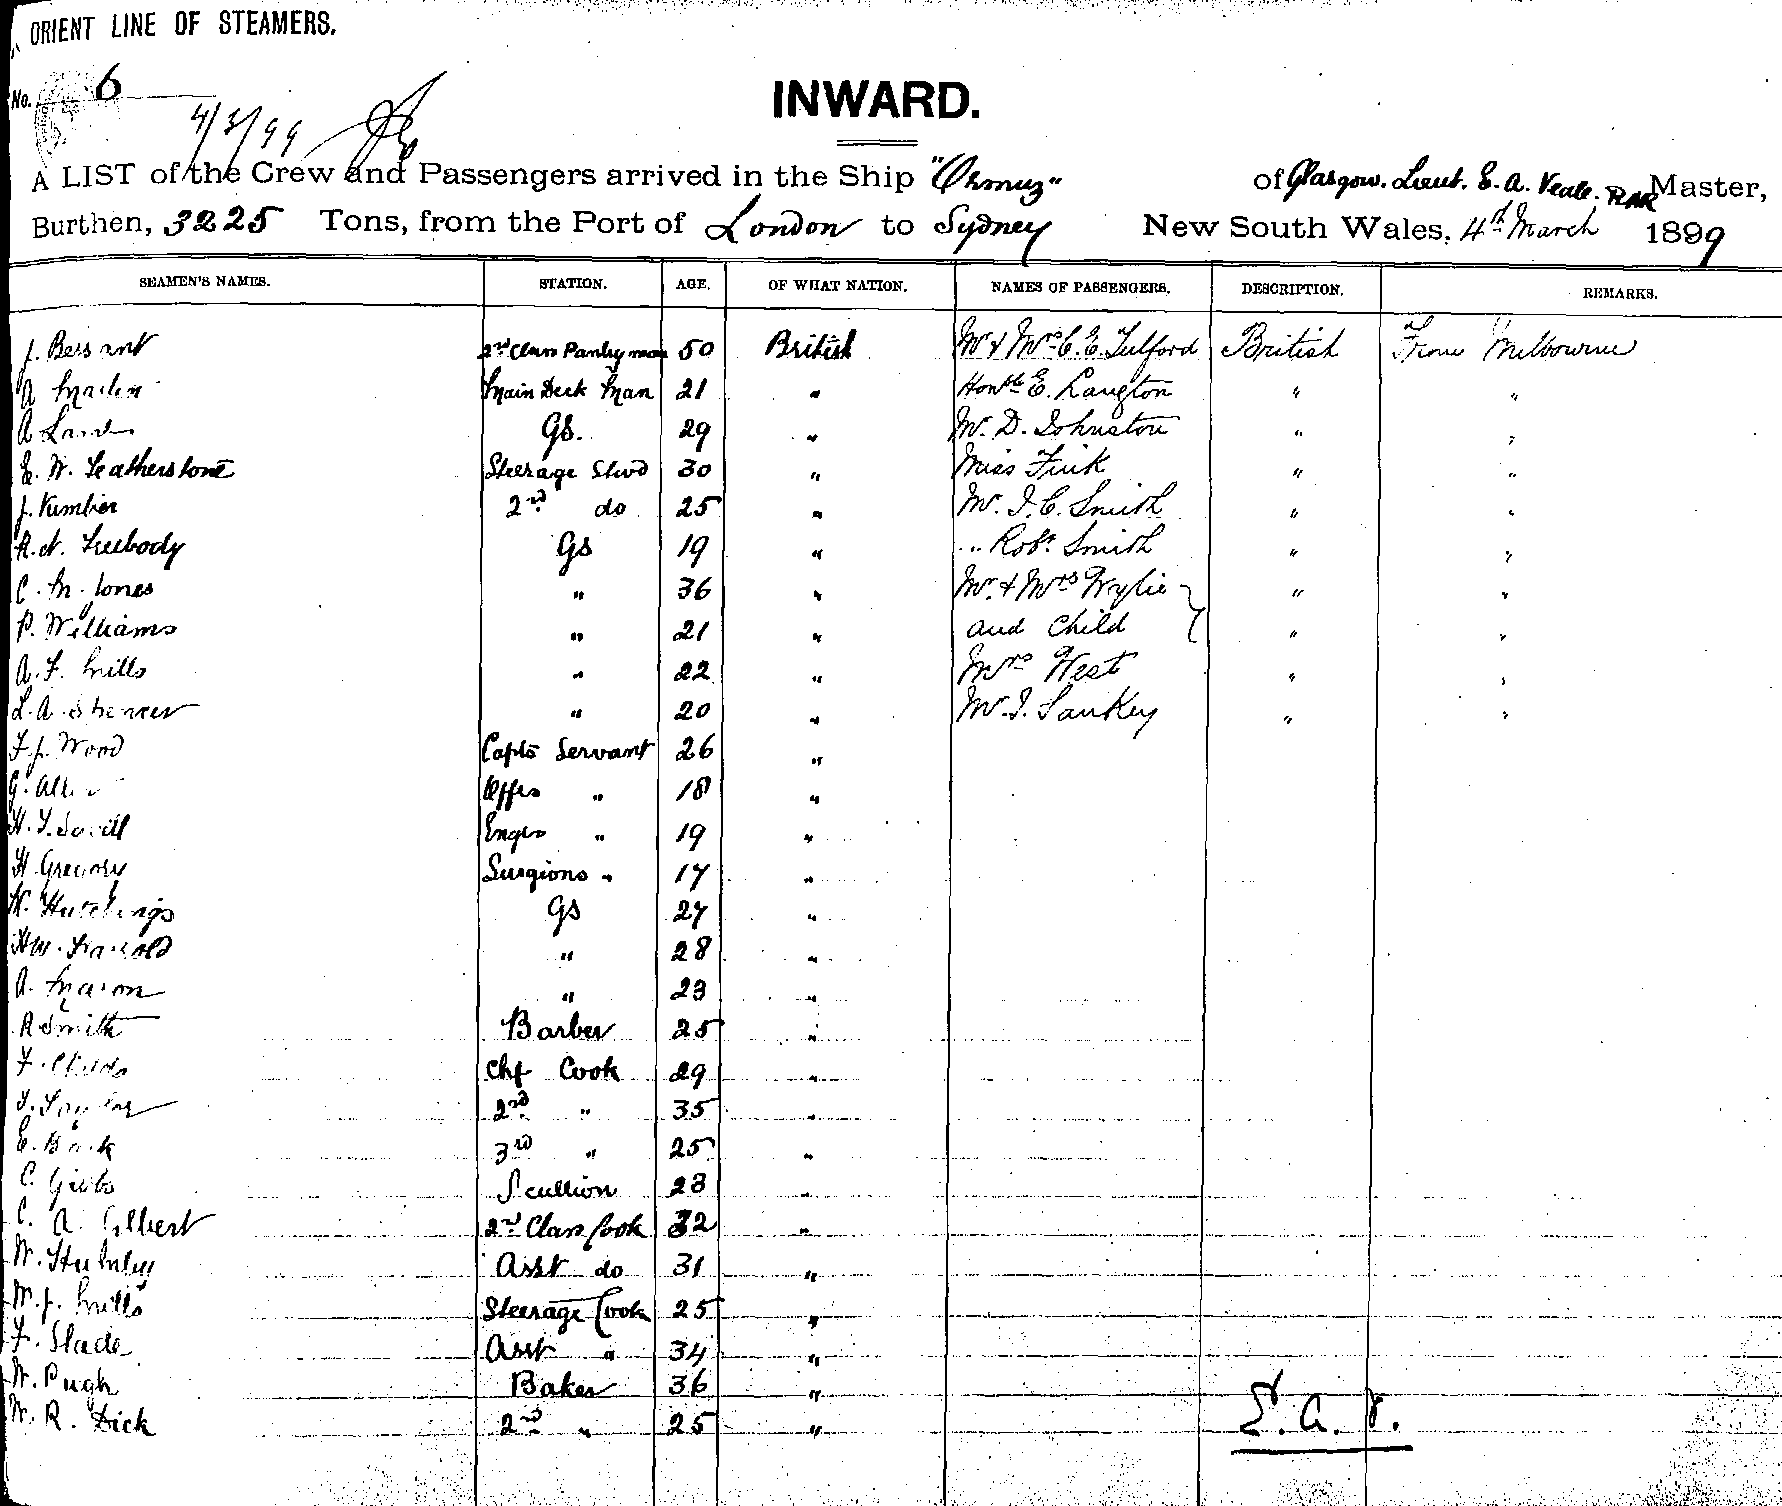 ORIENT LINE OF STEAMERS.
No. 6
4/3/99
INWARD.
A LIST of the Crew and Passengers arrived in the Ship "Ormuz" of Glasgow. Lieut. E. A. Veale. RNR Master,
Burthen, 3225 Tons, from the Port of London to Sydney New South Wales, 4th March 1899
SEAMEN'S NAMES. STATION. AGE. OF WHAT NATION. NAMES OF PASSENGERS. DESCRIPTION. REMARKS.
J. Bessant 2nd Class Pantryman 50 British Mr & Mrs C. E. Tulford British From Melbourne
A Martin Main Deck Man 21 " Honble E. Langton " "
A Land GS. 29 " Mr. D. Johnston " "
E. W. Featherstone Steerage Stwd 30 " Miss Fink " "
J. Kimber 2nd do 25 " Mr. J. C. Smith " "
R. N. Freebody GS 19 " " Robt. Smith " "
C. M. Jones " 36 " Mr. & Mrs Wylie " "
P. Williams " 21 " and Child " "
A. F. Mills " 22 " Mrs West " "
L. A. Spencer " 20 " Mr. J. Sankey " "
F. J. Wood Capts Servant 26 "
G. Allen Offrs " 18 "
H. T. Savill Engrs " 19 "
H. Gregory Surgions " 17 "
W. Hutchings GS 27 "
HW. " 28 "
A. Mason " 23 "
R Smith Barber 25 "
F. Childs Chf Cook 29 "
J. Taylor 2nd " 35 "
E. Back 3rd " 25 "
C. Gibbs Scullion 23 "
C. A. Gilbert 2nd Class Cook 32 "
W. Asst do 31 "
W. J. Mills Steerage Cook 25 "
F. Slade Asst " 34 "
W. Pugh Baker 36 "
W. R. Dick 2nd " 25 "
E. A. V.